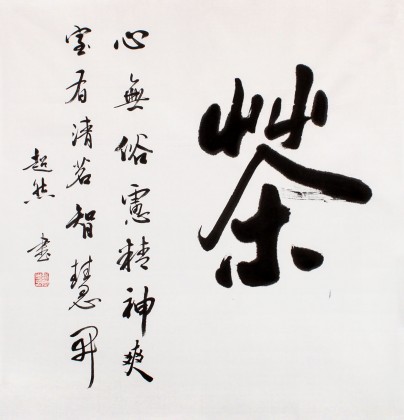 茶
心無俗慮精神爽
室有清茗智慧開
超然書